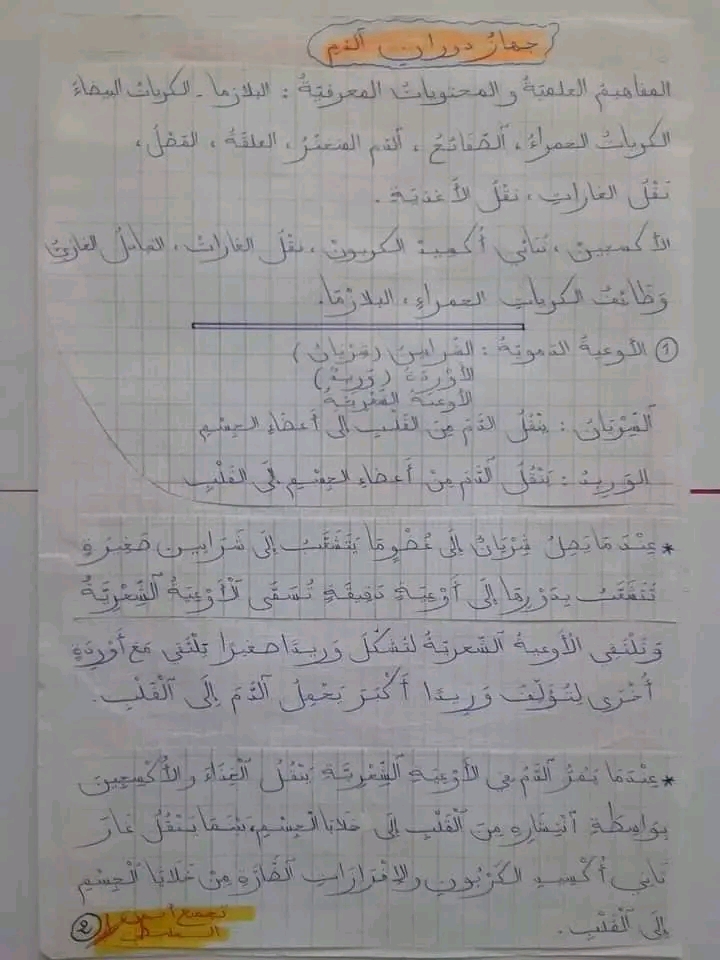 جهاز دوران الدم
المفاهيم العلمية والمحتويات المعرفية : البلازما - الكريات البيضاء
الكريات الحمراء، الصفائح، الدم المتخثر، العلقة، المصل،
نقل الغازات، نقل الأغذية.
الأكسجين، ثنائي أكسيد الكربون، نقل الغازات، التبادل الغازي
وظائف الكريات الحمراء، البلازما.
① الأوعية الدموية : الشرايين (شريان)
الأوردة (وريد)
الأوعية الشعرية
الشِّرْيَانُ : يَنْقُلُ الدَّمَ مِنَ القَلْبِ إلى أَعْضَاءِ الجِسْمِ
الوَرِيدُ : يَنْقُلُ الدَّمَ مِنْ أَعْضَاءِ الجِسْمِ إِلَى القَلْبِ
* عِنْدَمَا يَصِلُ شِرْيَانٌ إِلَى عُضْوٍ مَا يَتَشَعَّبُ إِلَى شَرَايِينَ صَغِيرَةٍ
تَتَشَعَّبُ بِدَوْرِهَا إِلَى أَوْعِيَةٍ دَقِيقَةٍ تُسَمَّى الْأَوْعِيَةُ الشَّعْرِيَّةُ
وَتَلْتَقِي الْأَوْعِيَةُ الشَّعْرِيَّةُ لِتُشَكِّلَ وَرِيدًا صَغِيرًا يَلْتَقِي مَعَ أَوْرِدَةٍ
أُخْرَى لِتُؤَلِّفَ وَرِيدًا أَكْبَرَ يَحْمِلُ الدَّمَ إِلَى الْقَلْبِ.
* عِنْدَمَا يَمُرُّ الدَّمُ فِي الأَوْعِيَةِ الشَّعْرِيَّةِ يَنْقُلُ الْغِذَاءَ وَالأُكْسِجِينَ
بِوَاسِطَةِ انْتِشَارِهِ مِنَ الْقَلْبِ إِلَى خَلَايَا الْجِسْمِ، بَيْنَمَا يَنْقُلُ غَازَ
ثَانِي أُكْسِيد الكَرْبُونِ وَالإِفْرَازَاتِ الضَّارَّةِ مِنْ خَلَايَا الْجِسْمِ
إِلَى الْقَلْبِ.
تجميع
②